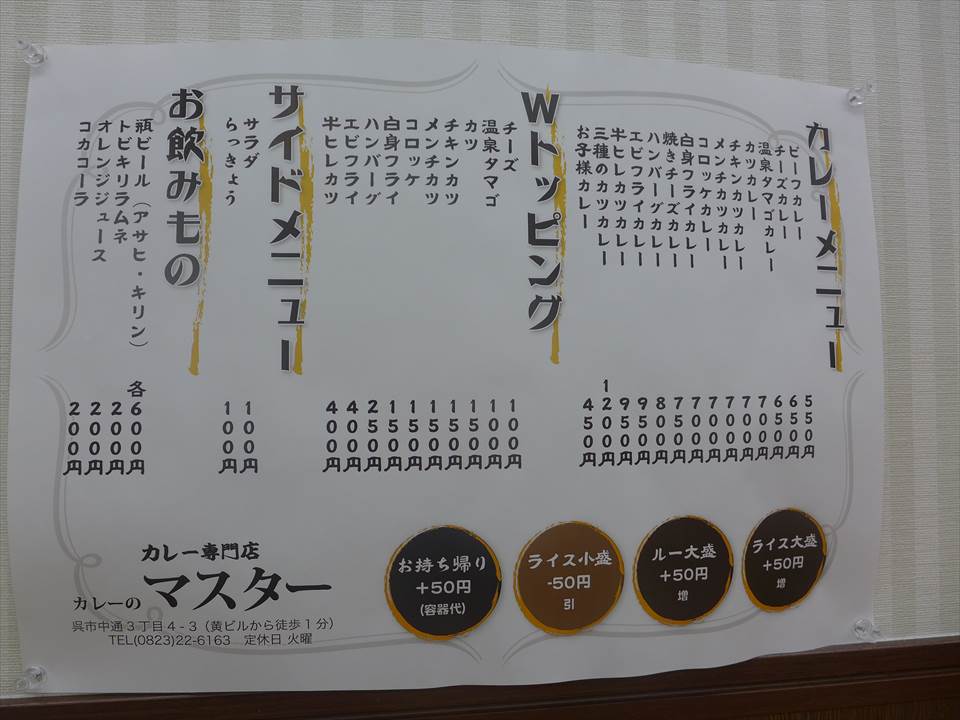 カレーメニュー
ビーフカレー 550円
チーズカレー 600円
温泉タマゴカレー 650円
カツカレー 700円
チキンカツカレー 700円
メンチカツカレー 700円
コロッケカレー 700円
白身フライカレー 700円
焼きチーズカレー 750円
ハンバーグカレー 800円
エビフライカレー 950円
牛ヒレカツカレー 950円
三種のカツカレー 1200円
お子様カレー 450円
Wトッピング
チーズ 100円
温泉タマゴ 100円
カツ 150円
チキンカツ 150円
メンチカツ 150円
コロッケ 150円
白身フライ 150円
ハンバーグ 250円
エビフライ 400円
牛ヒレカツ 400円
サイドメニュー
サラダ 100円
らっきょう 100円
お飲みもの
瓶ビール(アサヒ・キリン) 各600円
トビキリラムネ 200円
オレンジジュース 200円
コカコーラ 200円
ライス大盛
+50円
増
ルー大盛
+50円
増
ライス小盛
-50円
引
お持ち帰り
+50円
(容器代)
カレー専門店
カレーの マスター
呉市中通3丁目4-3(黄ビルから徒歩1分)
TEL(0823)22-6163 定休日 火曜